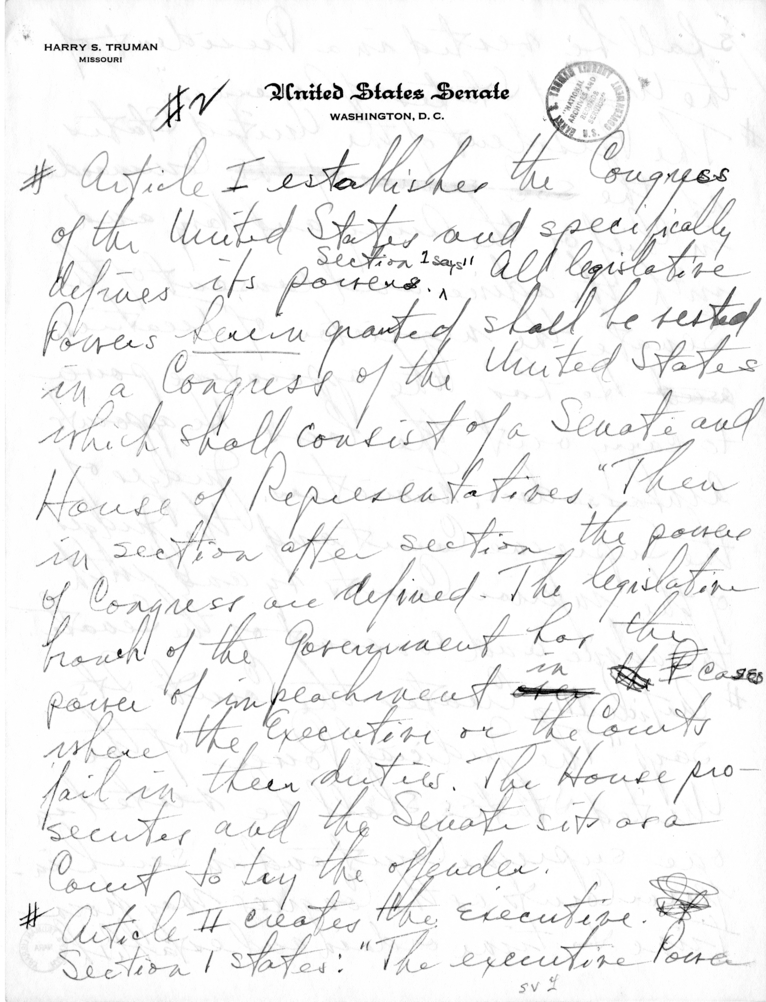 HARRY S. TRUMAN
MISSOURI
#2
United States Senate
WASHINGTON, D. C.
HARRY S. TRUMAN LIBRARY
"NATIONAL
ARCHIVES AND
RECORDS
SERVICE"
U.S.
# Article I establishes the Congress
of the United States and specifically
Section 1 says "
defines its powers. ^ All legislative
Powers herein granted shall be vested
in a Congress of the United States
which shall consist of a Senate and
House of Representatives." Then
in section after section the powers
of Congress are defined. The legislative
branch of the Government has the
power of impeachment in cases
where the Executive or the Courts
fail in their duties. The House pro-
secutes and the Senate sits as a
Court to try the offender.
# Article II creates the Executive.
Section 1 states: "The executive Power